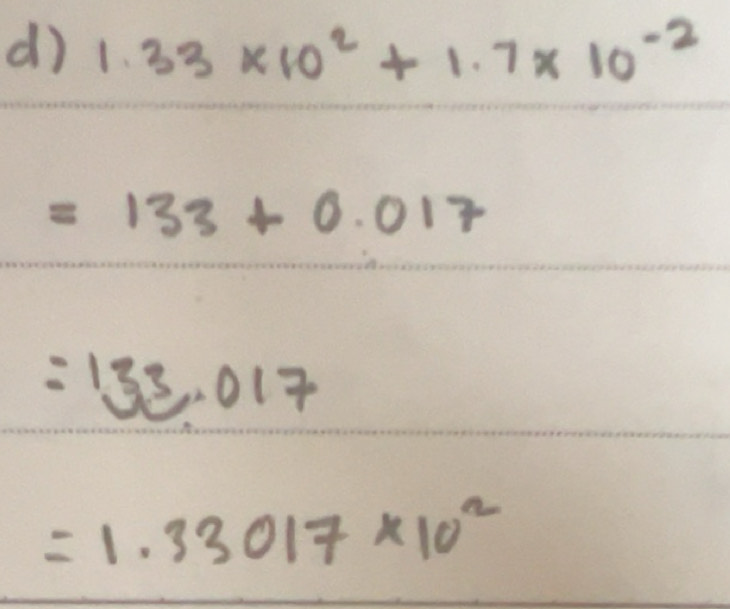 d) 1.33 ×10² + 1.7 × 10⁻²
= 133 + 0.017
= 133.017
= 1.33017 ×10²